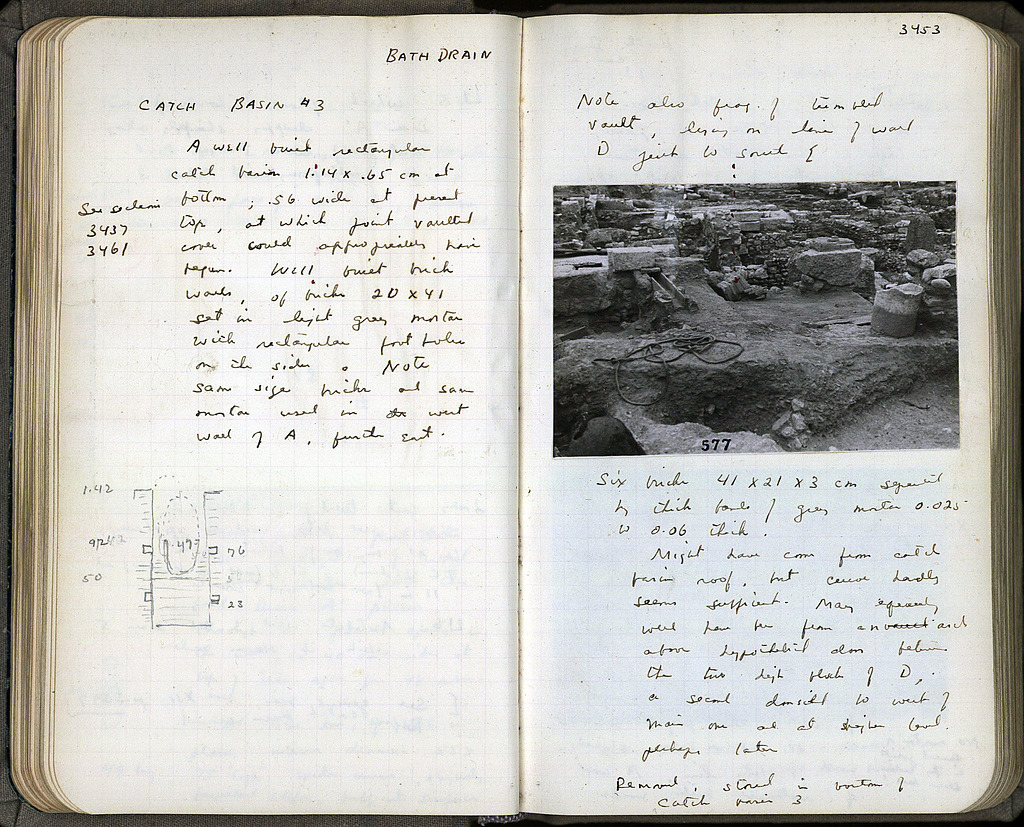 BATH DRAIN
CATCH BASIN #3
A well built rectangular
catch basin 1.14 x .65 cm at
bottom ; .56 wide at present
top, at which point vaulted
cover could appropriately have
begun. Well built brick
walls, of bricks 20 x 41
set in light grey mortar
with rectangular foot holes
on the sides. Note
same size bricks and same
mortar used in west
wall of A, further east.
See sections
3437
3461
1.42
50
.497
76
5
23
3453
Note also frag. of
vault, lying on line of wall
D just to south
577
Six bricks 41 x 21 x 3 cm separated
by thick bands of grey mortar 0.025
to 0.06 thick.
Might have come from catch
basin roof, but curve hardly
seems sufficient. May equally
well have been from an vault arch
above hypothetical door between
the two high blocks of D,
a second doorsill to west of
main one and at higher level.
perhaps later
Removed, stored in bottom of
catch basin 3